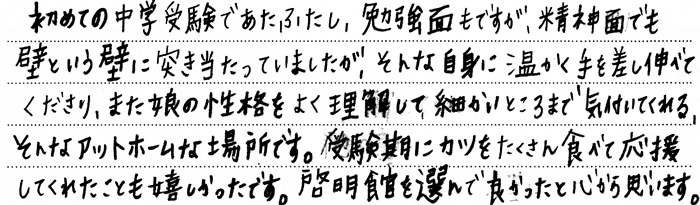 初めての中学受験であたふたし、勉強面もですが、精神面でも
壁という壁に突き当たっていましたが、そんな自身に温かく手を差し伸べて
くださり、また娘の性格をよく理解して細かいところまで気付いてくれる、
そんなアットホームな場所です。受験期にカツをたくさん食べて応援
してくれたことも嬉しかったです。啓明館を選んで良かったと心から思います。